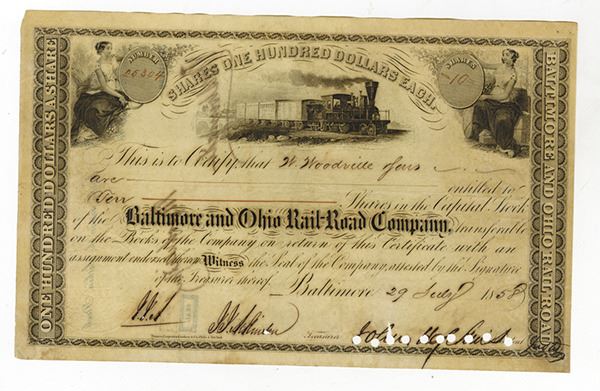 SHARES ONE HUNDRED DOLLARS EACH.
NUMBER
25304
SHARES
10
ONE HUNDRED DOLLARS A SHARE
BALTIMORE AND OHIO RAIL-ROAD
This is to Certify, that W. Woodville
are entitled to
Ten Shares in the Capital Stock
of the Baltimore and Ohio Rail-Road Company, transferable
on the Books of the Company on return of this Certificate with an
assignment endorsed thereon Witness the Seal of the Company, attested by the Signature
of the Treasurer thereof. Baltimore 29 July 1858
Treasurer